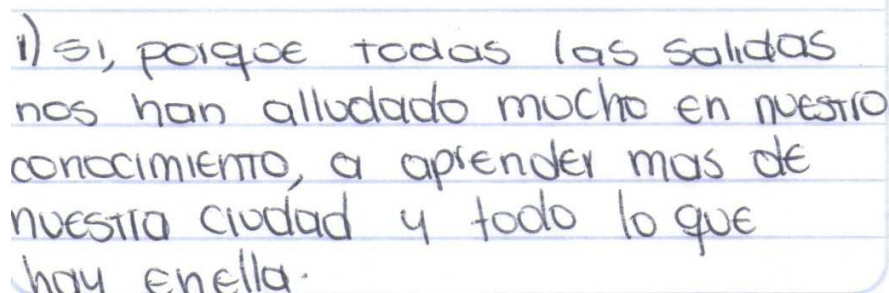 1) si, porque todas las salidas
nos han alludado mucho en nuestro
conocimiento, a aprender mas de
nuestra ciudad y todo lo que
hay enella.